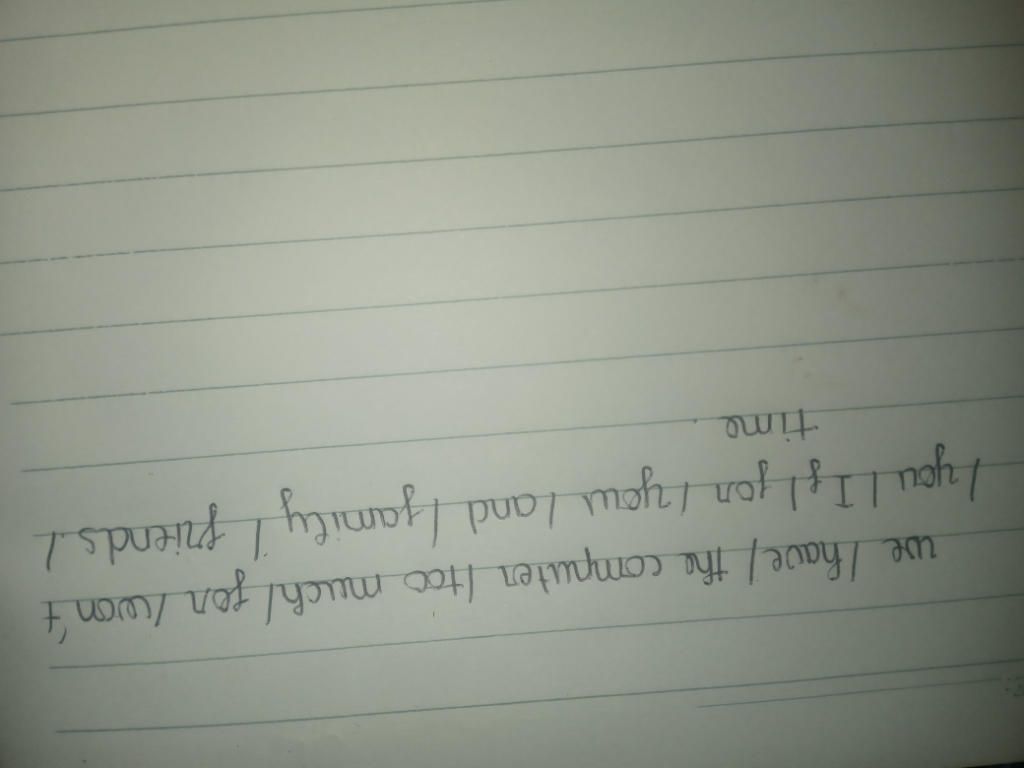 we / have / the computer / too much / for / won't
/ you / If / for / your / and / family / friends. /
time.